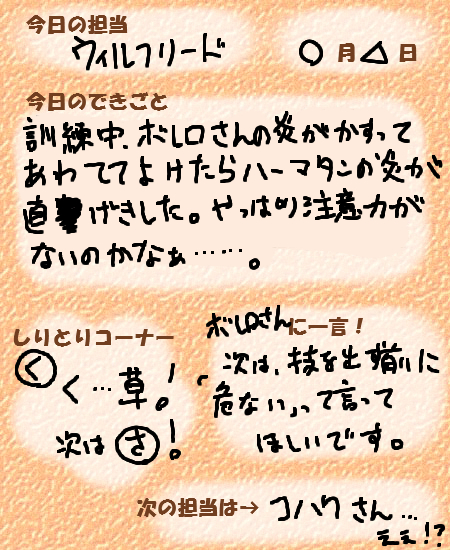 今日の担当
ウィルフリード
○月△日
今日のできごと
訓練中、ボレロさんの炎がかすって
あわててよけたらハーマタンの炎が
直げきした。やっぱり注意力が
ないのかなぁ……。
しりとりコーナー
く
く…草！
次はさ！
ボレロさんに一言！
次は、技を出す前に
「危ない」って言って
ほしいです。
次の担当は→コハクさん…
ええ!?